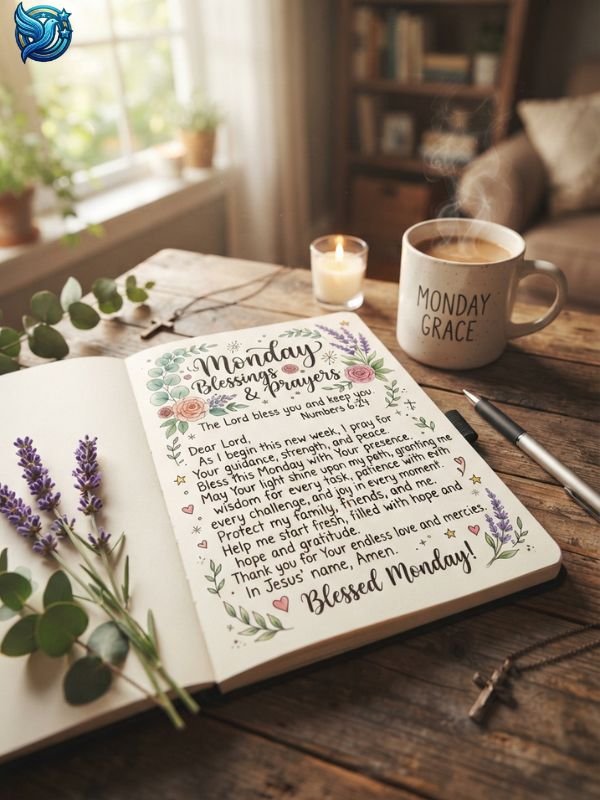 Monday
Blessings
& Prayers
The Lord bless you and keep you
Numbers 6:24
Dear Lord,
As I begin this new week, I pray for
Your guidance, strength, and peace.
Bless this Monday with Your presence.
May Your light shine upon my path, granting me
wisdom for every task, patience with evith
every challenge, and joy in every moment.
Protect my family, friends, and me.
Help me start fresh, filled with hope and
hope and gratitude.
Thank you for Your endless love and mercies.
In Jesus' name, Amen.
Blessed Monday!
MONDAY
GRACE